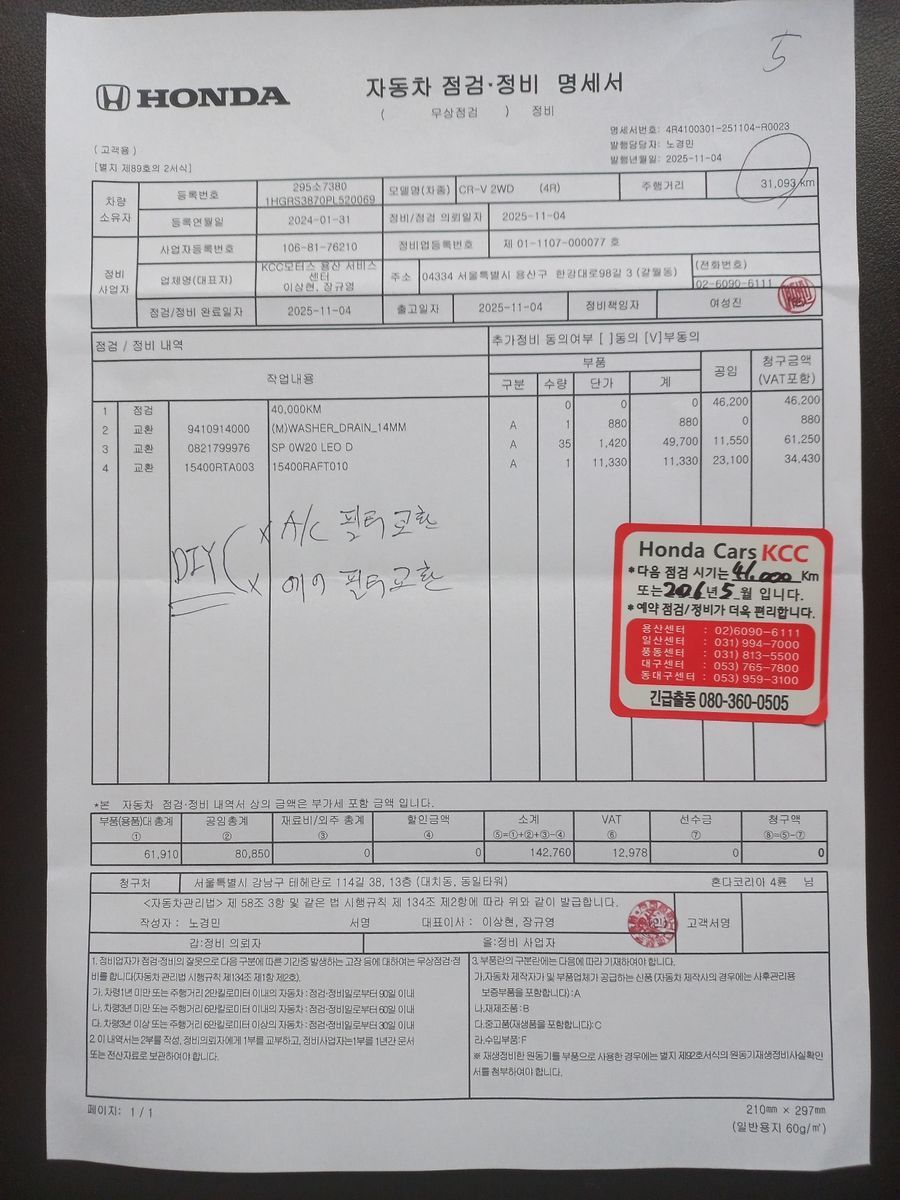 5
HONDA
자동차 점검·정비 명세서
( 무상점검 ) 정비
명세서번호: 4R4100301-251104-R0023
(고객용)
발행담당자: 노경민
[별지 제89호의 2서식]
발행년월일: 2025-11-04
차량 소유자
등록번호 295소7380 1HGRS3870PL520069 모델명(차종) CR-V 2WD (4R) 주행거리 31,093 km
등록연월일 2024-01-31 정비/점검 의뢰일자 2025-11-04
정비 사업자
사업자등록번호 106-81-76210 정비업등록번호 제 01-1107-000077 호
업체명(대표자) KCC모터스 용산 서비스 센터 이상현, 장규영 주소 04334 서울특별시 용산구 한강대로98길 3 (갈월동) (전화번호) 02-6090-6111
점검/정비 완료일자 2025-11-04 출고일자 2025-11-04 정비책임자 여성진
점검 / 정비 내역 추가정비 동의여부 [ ]동의 [V]부동의
작업내용 부품 공임 청구금액 (VAT포함)
구분 수량 단가 계
1 점검 40,000KM 0 0 0 46,200 46,200
2 교환 9410914000 (M)WASHER_DRAIN_14MM A 1 880 880 0 880
3 교환 0821799976 SP 0W20 LEO D A 35 1,420 49,700 11,550 61,250
4 교환 15400RTA003 15400RAFT010 A 1 11,330 11,330 23,100 34,430
DIY ( x A/C 필터교환
x 에어 필터교환
Honda Cars KCC
*다음 점검 시기는 41,000 Km
또는 2026년 5 월 입니다.
*예약 점검/정비가 더욱 편리합니다.
용산센터 : 02)6090-6111
일산센터 : 031) 994-7000
풍동센터 : 031) 813-5500
대구센터 : 053) 765-7800
동대구센터 : 053) 959-3100
긴급출동 080-360-0505
*본 자동차 점검·정비 내역서 상의 금액은 부가세 포함 금액 입니다.
부품(용품)대 총계 ① 공임총계 ② 재료비/외주 총계 ③ 할인금액 ④ 소계 ⑤=①+②+③-④ VAT ⑥ 선수금 ⑦ 청구액 ⑧=⑤-⑦
61,910 80,850 0 0 142,760 12,978 0 0
청구처 서울특별시 강남구 테헤란로 114길 38, 13층 (대치동, 동일타워) 혼다코리아 4륜 님
<자동차관리법> 제 58조 3항 및 같은 법 시행규칙 제 134조 제2항에 따라 위와 같이 발급합니다.
작성자 : 노경민 서명 대표이사 : 이상현, 장규영 (인) 고객서명
갑:정비 의뢰자 을:정비 사업자
1. 정비업자가 점검·정비의 잘못으로 다음 구분에 따른 기간중 발생하는 고장 등에 대하여는 무상점검·정
비를 합니다(자동차 관리법 시행규칙 제134조 제1항 제2호).
가. 차령1년 미만 또는 주행거리 2만킬로미터 이내의 자동차 : 점검·정비일로부터 90일 이내
나. 차령3년 미만 또는 주행거리 6만킬로미터 이내의 자동차 : 점검·정비일로부터 60일 이내
다. 차령3년 이상 또는 주행거리 6만킬로미터 이상의 자동차 : 점검·정비일로부터 30일 이내
2. 이 내역서는 2부를 작성, 정비의뢰자에게 1부를 교부하고, 정비사업자는 1부를 1년간 문서
또는 전산자료로 보관하여야 합니다.
3. 부품란의 구분란에는 다음에 따라 기재하여야 합니다.
가.자동차 제작자가 및 부품업체가 공급하는 신품 (자동차 제작사의 경우에는 사후관리용
보증부품을 포함합니다) : A
나.재제조품 : B
다.중고품(재생품을 포함합니다): C
라.수입부품: F
※ 재생정비한 원동기를 부품으로 사용한 경우에는 별지 제92호서식의 원동기재생정비사실확인
서를 첨부하여야 합니다.
페이지: 1 / 1
210mm × 297mm
(일반용지 60g/㎡)